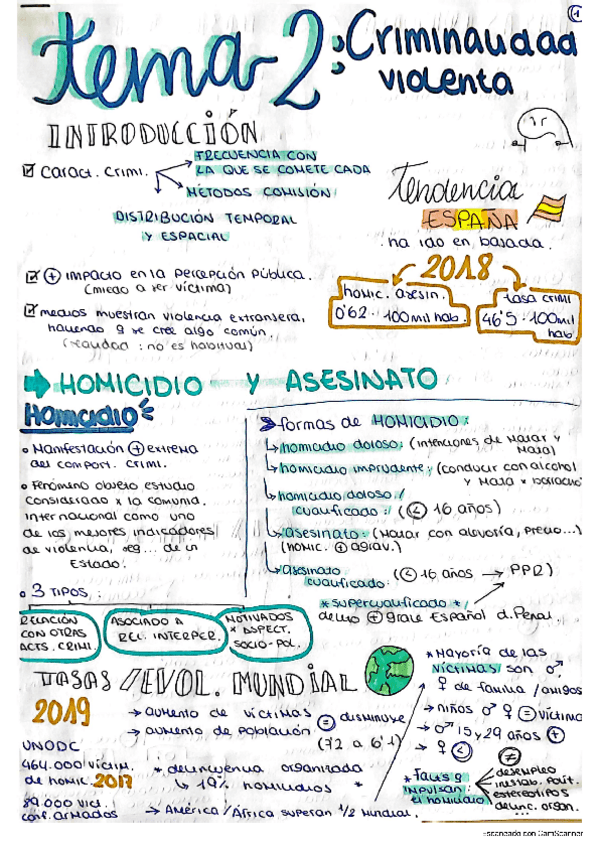 tema 2:
Criminalidad
violenta
INTRODUCCIÓN
caract. crimi.
FRECUENCIA CON
LA QUE SE COMETE CADA
MÉTODOS COMISIÓN
DISTRIBUCIÓN TEMPORAL
Y ESPACIAL
Tendencia
ESPAÑA
ha ido en bajada.
2018
homic. asesin.
0'62 · 100mil hab.
tasa crimi
46'5 · 100mil
hab.
+ impacto en la percepción pública.
(miedo a ser víctima)
medios muestran violencia extranjera,
haciendo q se cree algo común.
(realidad: no es habitual)
HOMICIDIO Y ASESINATO
Homicidio
Manifestación + extrema
del comport. crimi.
Fenómeno objeto estudio
considerado x la comunid.
internacional como uno
de los mejores indicadores
de violencia, seg... de un
Estado.
3 TIPOS:
RELACIÓN
CON OTRAS
ACTS. CRIMI.
ASOCIADO A
REL. INTERPER.
MOTIVADOS
x ASPECT.
SOCIO-POL.
formas de HOMICIDIO:
homicidio doloso: (intenciones de matar y
mata)
homicidio imprudente: (conducir con alcohol
y mata x borracho
homicidio doloso /
cualificado: (< 16 años)
asesinato: (Matar con alevosía, precio...)
(homic. + agrav.)
asesinato
cualificado: (< 16 años → PPR)
*supercualificado*/
delito + grave Español d. Penal.
TASAS / EVOL. MUNDIAL
2019
→ aumento de víctimas = disminuye
→ aumento de población (7'2 a 6'1)
UNODC
464.000 víctim.
de homic. 2017
89.000 víct.
conf. armados
* delincuencia organizada
↳ 19% homicidios *
→ América / África superan 1/2 mundial.
* Mayoría de las
víctimas son ♂
♀ de familia / amigos
→ niños ♂ ♀ = víctima
→ ♂ 15 y 29 años +
→ ♀ <
≠
* Facts q
impulsan
el homicidio
desempleo
inestab. polít.
estereotipos
delinc. organ.
Escaneado con CamScanner